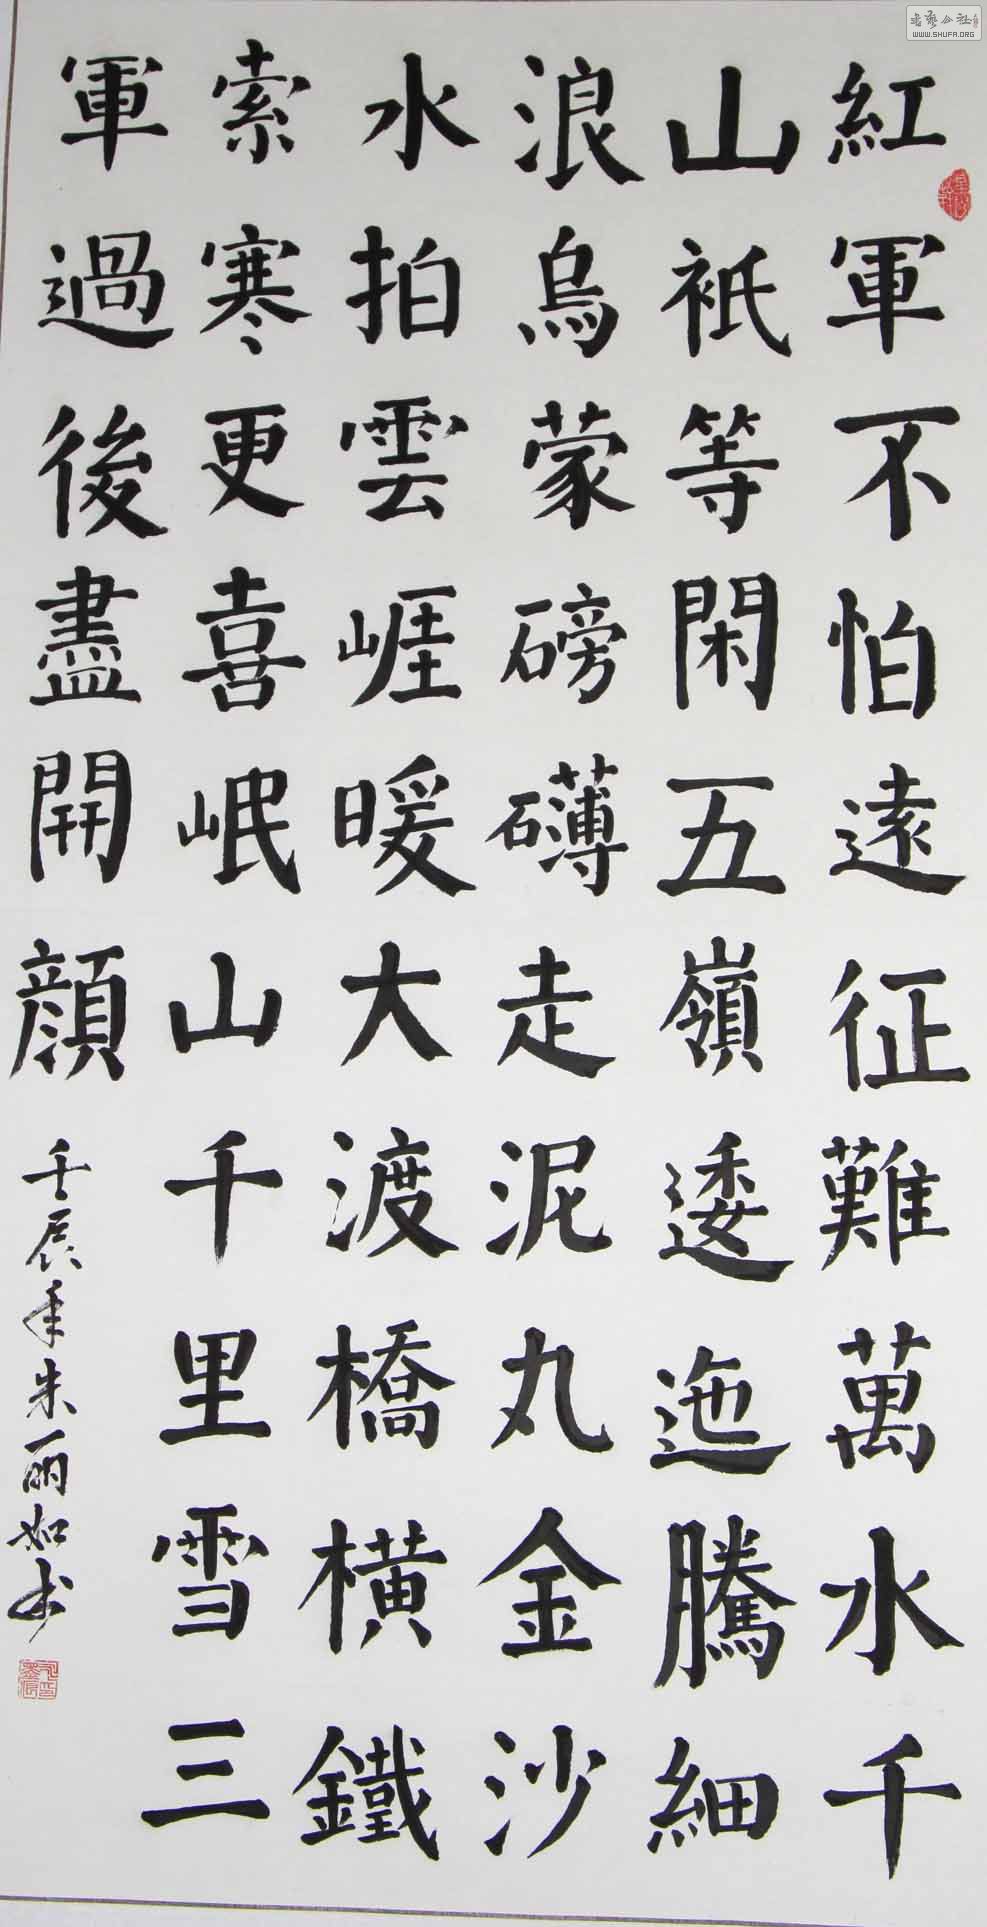 紅軍不怕遠征難萬水千
山祇等閑五嶺逶迤騰細
浪烏蒙磅礴走泥丸金沙
水拍雲崕暖大渡橋橫鐵
索寒更喜岷山千里雪三
軍過後盡開顔
壬辰年朱丽如书
书艺公社
WWW.SHUFA.ORG